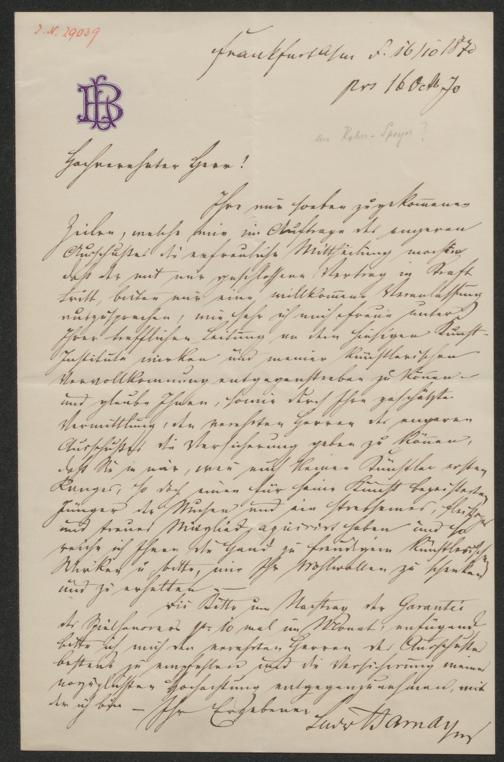 J. N. 29039
Frankfurt a/m d. 16/10 1870
prs 16 Octb 70
LB
an Kohn-Speyer?
Hochverehrter Herr!
Ihre mir soeben zugekommenen
Zeilen, welche mir im Auftrage des engeren
Ausschußes die erfreuliche Mittheilung machen
daß der mit mir geschlossene Vertrag in Kraft
tritt, bieten mir eine willkommene Veranlassung
auszusprechen, wie sehr ich mich freue unter
Ihrer trefflichen Leitung an dem hiesigen Kunst-
Institute wirken und meiner künstlerischen
Vervollkommnung entgegenstreben zu können –
und glaube Ihnen, sowie durch Ihre geschätzte
Vermittlung, den verehrten Herren des engeren
Ausschußes die Versicherung geben zu können,
daß Sie in mir, wenn auch keinen Künstler ersten
Ranges, so doch einen für seine Kunst begeisterten
Jünger der Musen und ein strebsames, fleißiges
und treues Mitglied acquirirt haben und so
reiche ich Ihnen die Hand zu freudigem künstlerischen
Wirken u bitte, mir Ihr Wohlwollen zu schenken
und zu erhalten –
Die Bitte um Nachtrag der Garantie
des Spielhonorars pr 10 mal im Monat anfügend
bitte ich mich den verehrten Herren des Ausschußes
bestens zu empfehlen und die Versicherung meiner
vorzüglichsten Hochachtung entgegenzunehmen, mit
der ich bin – Ihr Ergebener
Ludw Barnay